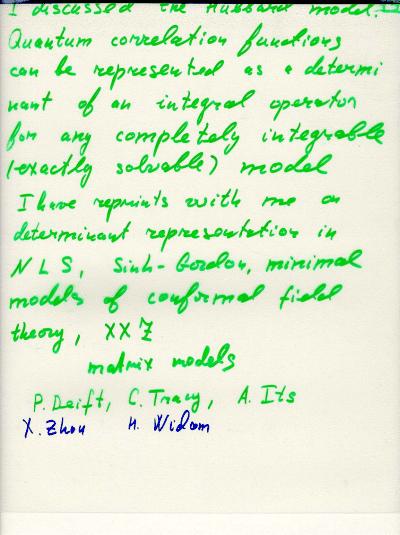 I discussed the Hubbard model.
Quantum correlation functions
can be represented as a determi
nant of an integral operator
for any completely integrable
(exactly solvable) model
I have reprints with me on
determinant representation in
NLS, Sinh-Gordon, minimal
models of conformal field
theory, XXZ
matrix models
P. Deift, C. Tracy, A. Its
X. Zhou H. Widom